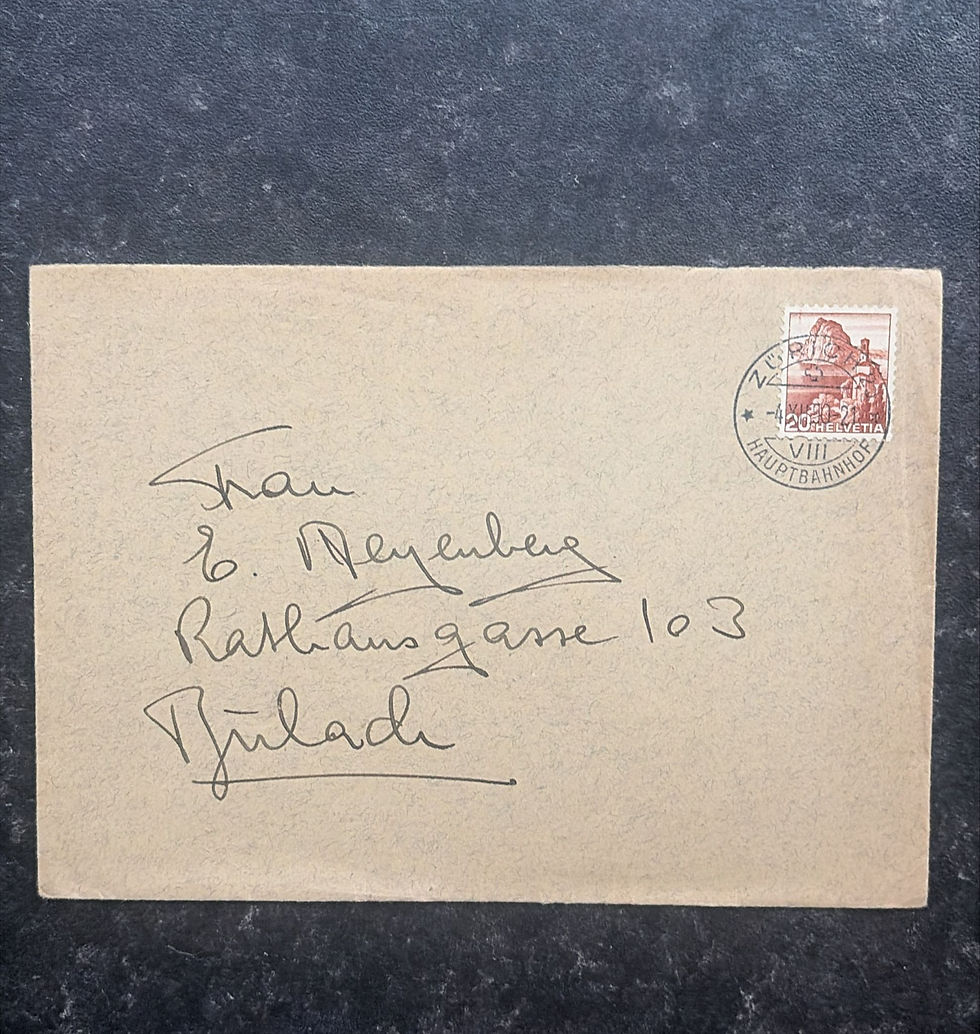 ZÜRICH
-4.XII.50-21
VIII
HAUPTBAHNHOF
20 HELVETIA
Frau
E. Meyenberg
Rathausgasse 103
Bülach